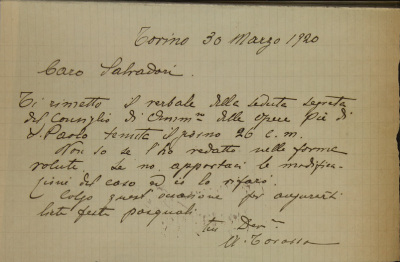 Torino 30 Marzo 1920
Caro Salvadori.
Ti rimetto il verbale della seduta segreta
del Consiglio di Amm.ne delle Opere Pie di
S. Paolo tenuta il giorno 26 c.m.
Non so se l'ho redatto nelle forme
volute, se no apportaci le modifica-
zioni del caso ed io lo rifarò.
Colgo quest'occasione per augurarti
liete feste pasquali
tuo Dev.